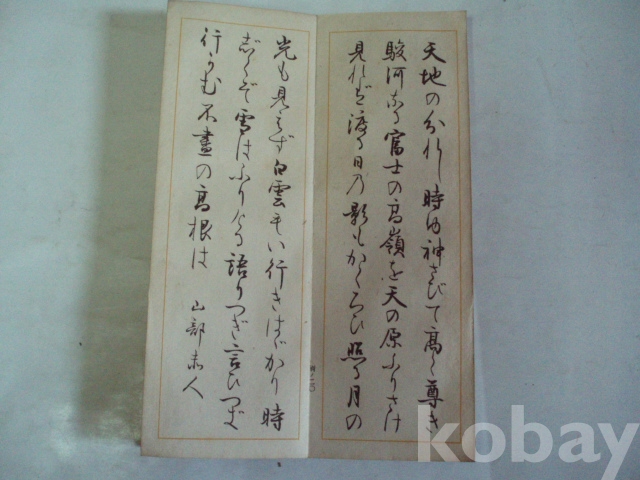 天地の分れし時ゆ神さびて高く尊き
駿河なる富士の高嶺を天の原ふりさけ
見れば渡る日の影もかくろひ照る月の
光も見えず白雲もい行きはばかり時
じくぞ雪はふりける語りつぎ言ひつぎ
行かむ不盡の高根は 山部赤人
kobay